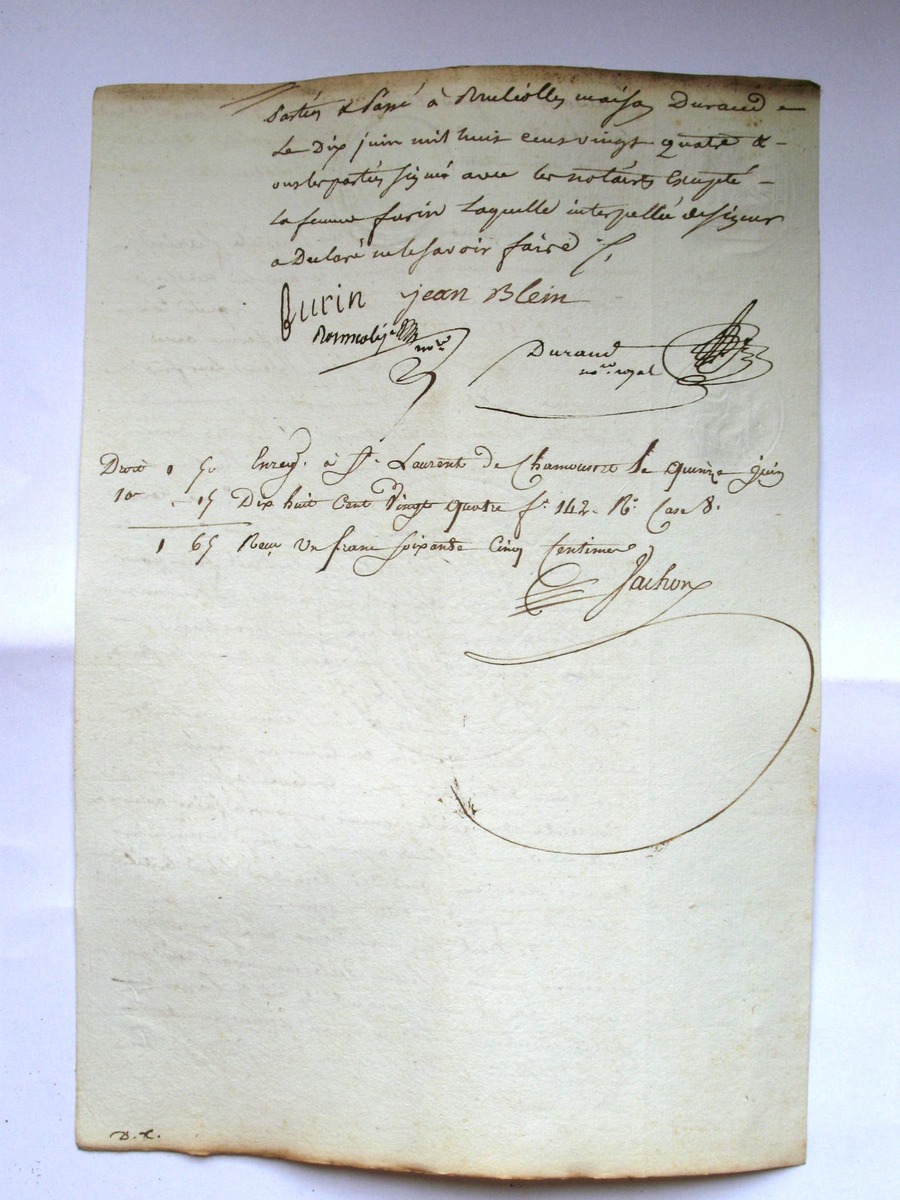 parties & Passé à Brulliolles maison Durand
Le Dix juin mil huit cent vingt quatre &
ont les parties signé avec les notaires Excepté
La femme furin Laquelle interpellée de signer
a Declaré ne le savoir faire
Burin jean Blein
nore
Durand
nore royal
Droit 1 50 Enreg. à St. Laurent De Chamousset le quinze juin
10e - 15 Dix huit Cent Vingt quatre fo. 142 Ro. Case 8.
1 65 Reçu Un franc soixante Cinq Centimes
Jachon